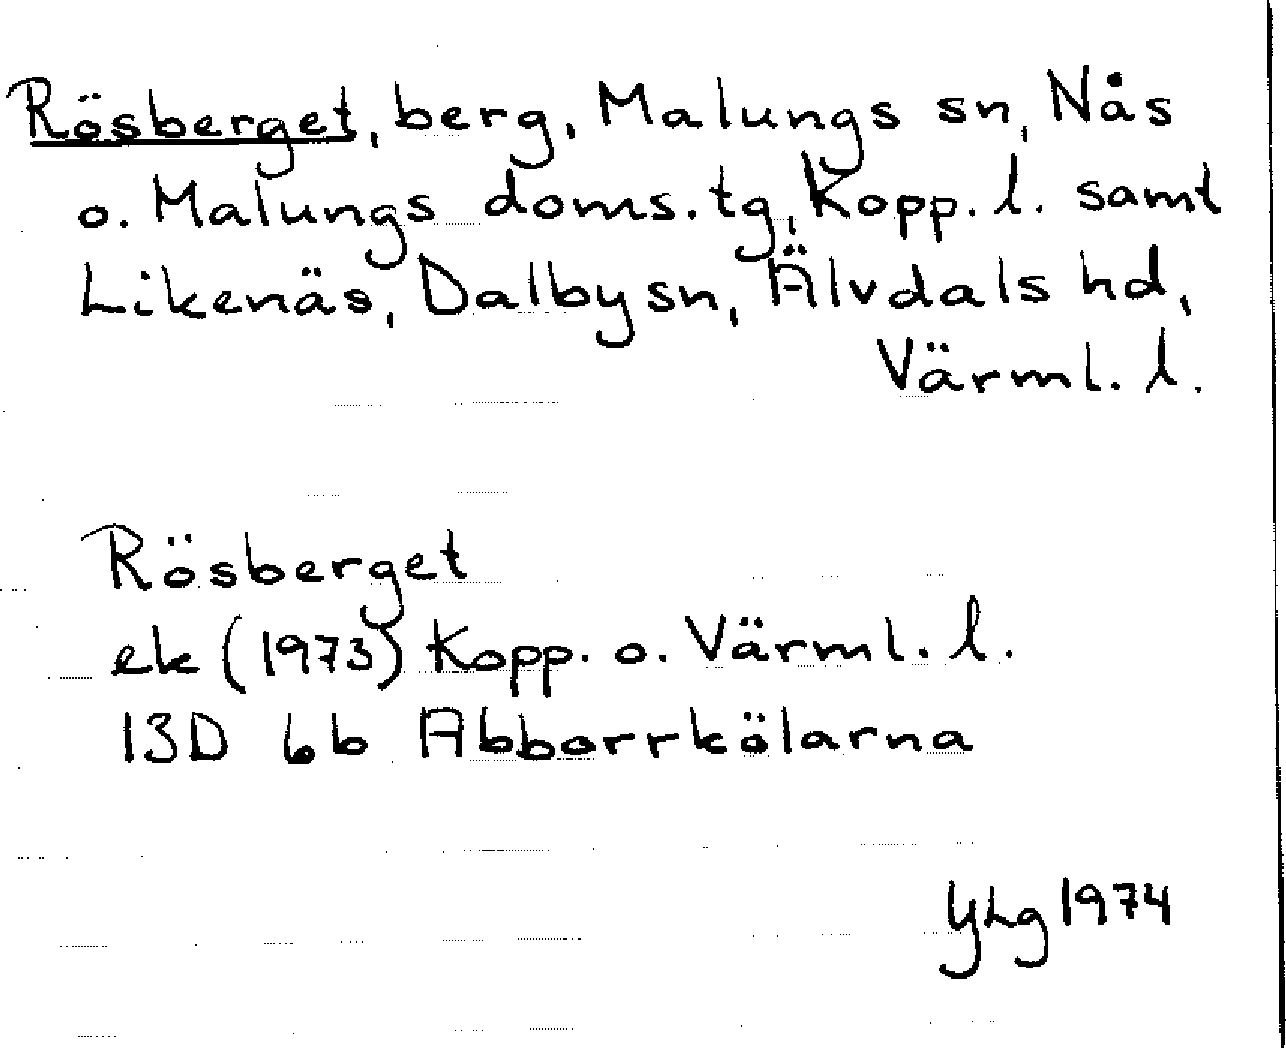 Rösberget, berg, Malungs sn, Nås
o. Malungs doms.tg, Kopp. l. samt
Likenäs, Dalby sn, Älvdals hd,
Värml. l.
Rösberget
ek (1973) Kopp. o. Värml. l.
13D 6b Abborrkölarna
YLg 1974